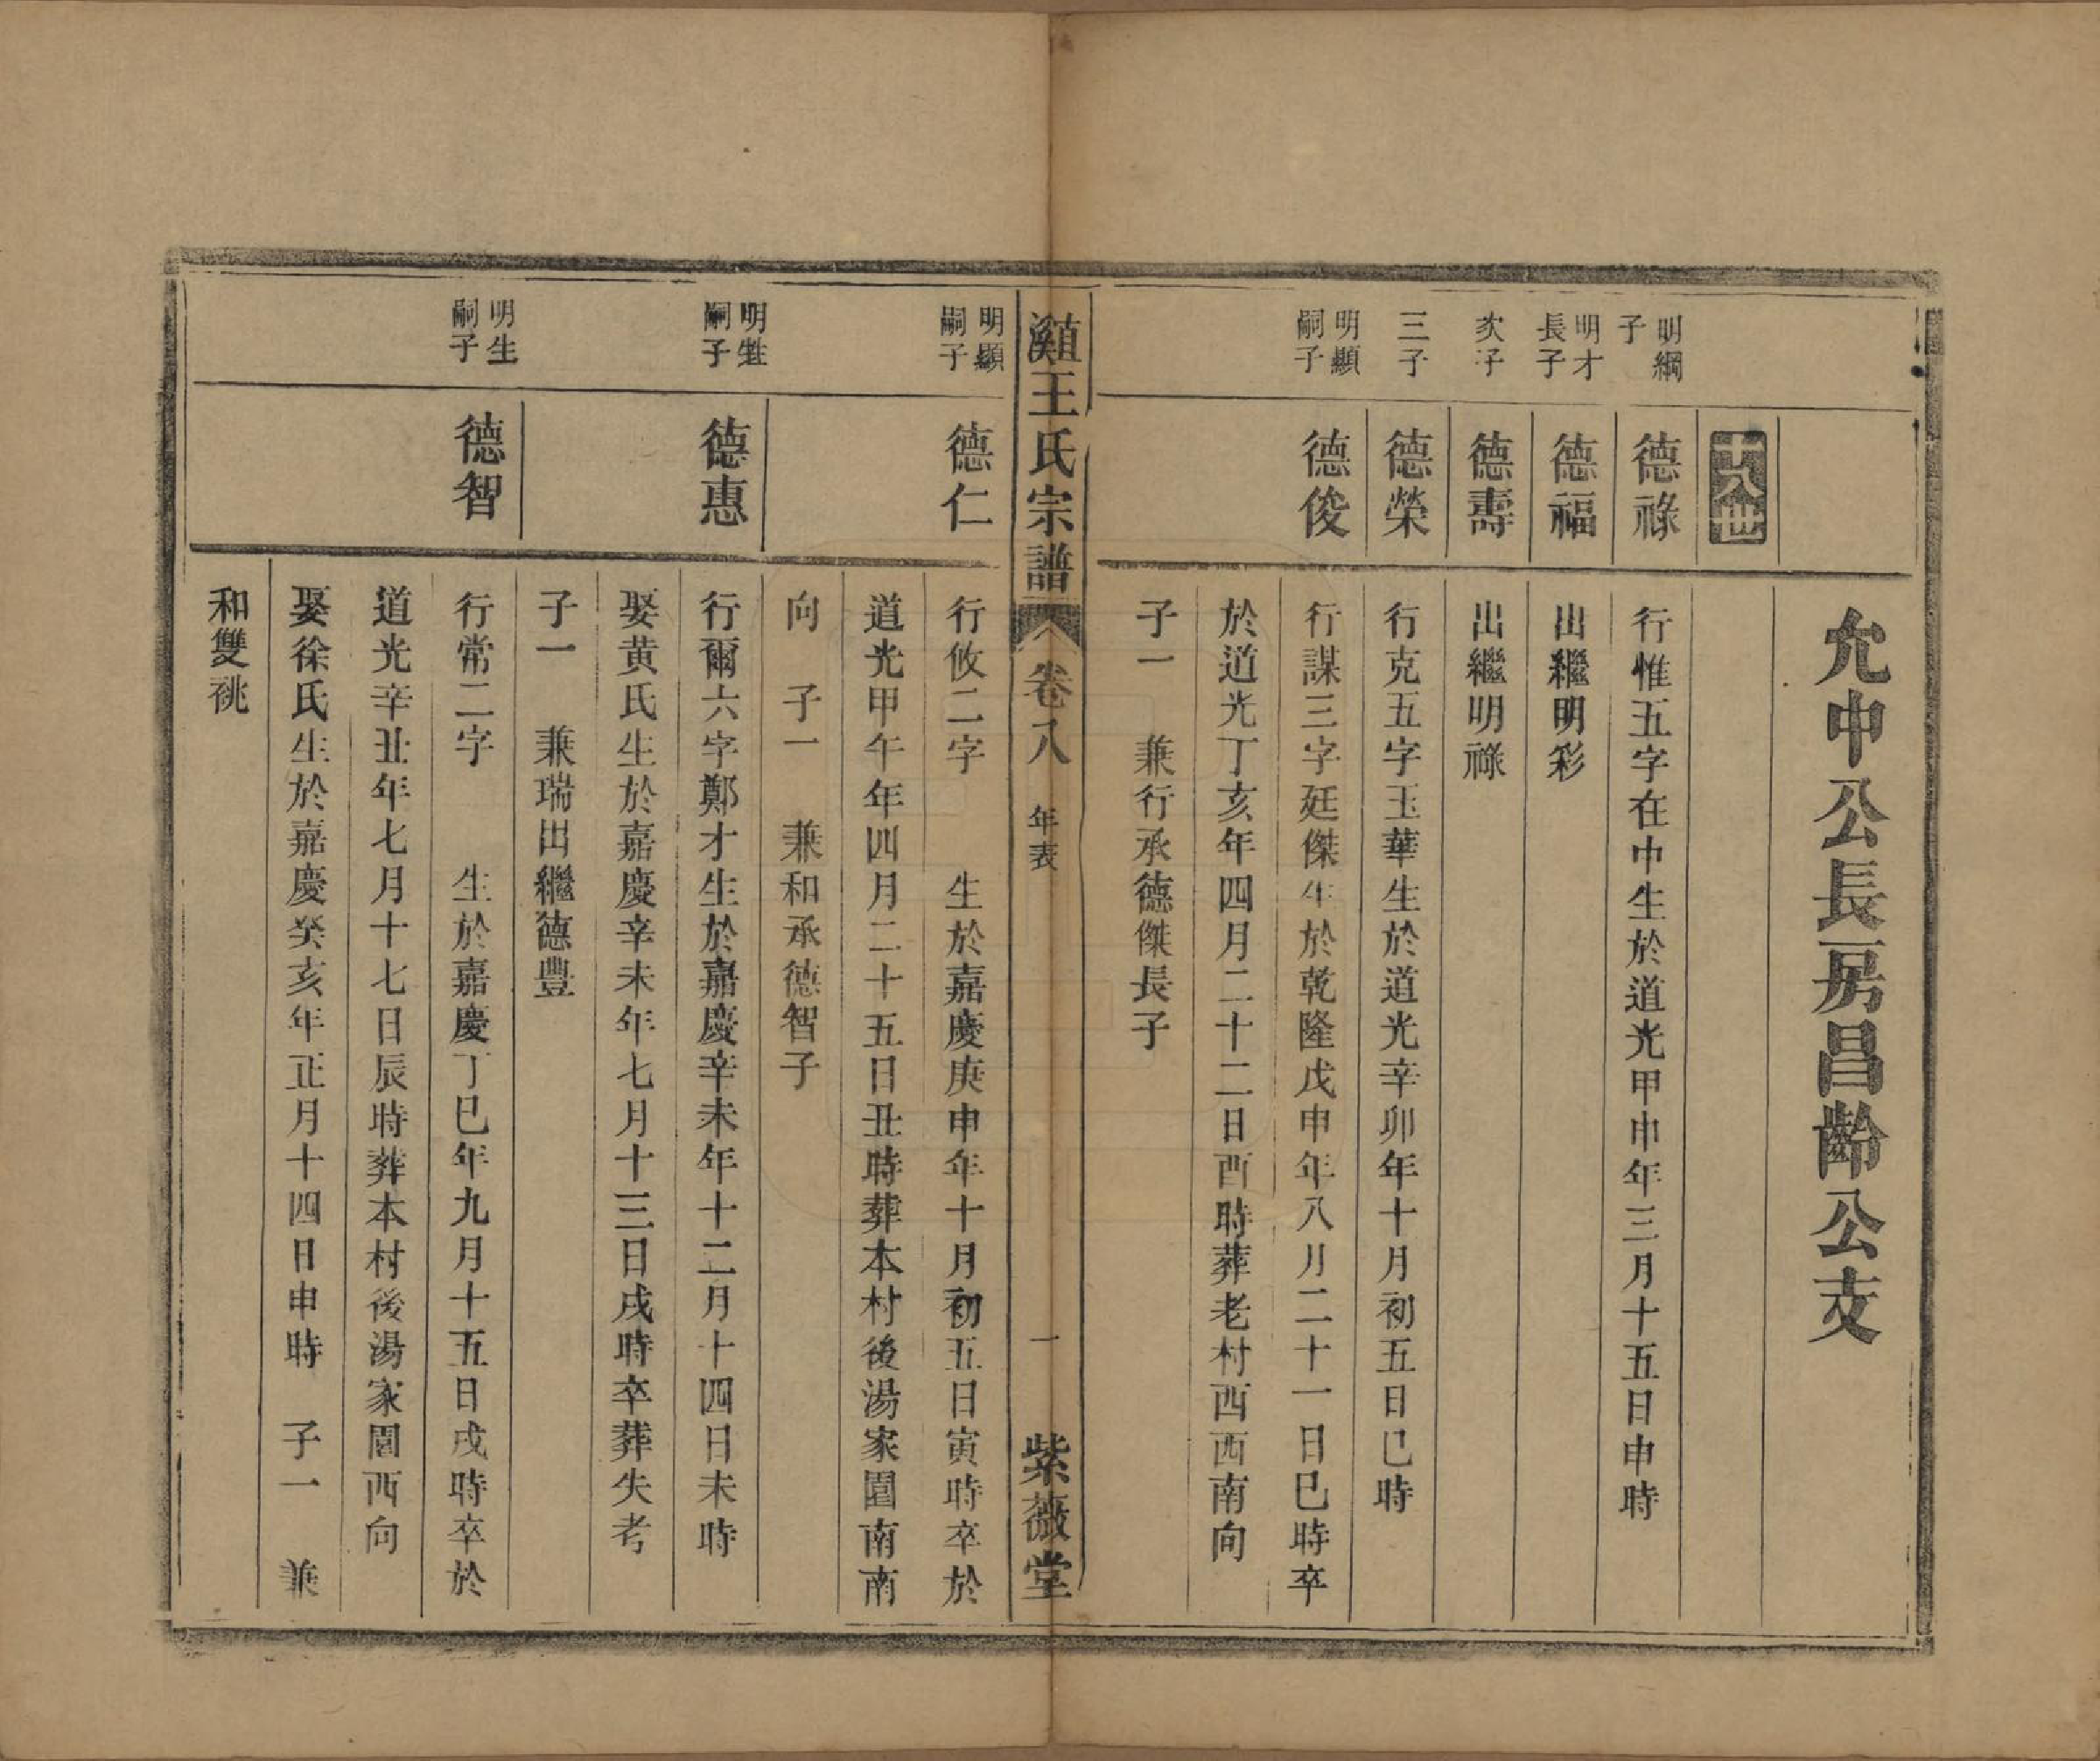 允中公長房昌齡公支
十八世
明綱子
德祿
行惟五字在中生於道光甲申年三月十五日申時
明才長子
德福
出繼明彩
次子
德壽
出繼明祿
三子
德榮
行克五字玉華生於道光辛卯年十月初五日巳時
明顯嗣子
德俊
行謀三字廷傑生於乾隆戊申年八月二十一日巳時卒
於道光丁亥年四月二十二日酉時葬老村西西南向
子一　兼行承德傑長子
王氏宗譜　卷八　年表　一　紫薇堂
明顯嗣子
德仁
行攸二字　生於嘉慶庚申年十月初五日寅時卒於
道光甲午年四月二十五日丑時葬本村後湯家園南南
向　子一　兼和承德智子
明甡嗣子
德惠
行爾六字鄭才生於嘉慶辛未年十二月十四日未時
娶黄氏生於嘉慶辛未年七月十三日戌時卒葬失考
子一　兼瑞出繼德豐
明生嗣子
德智
行常二字　生於嘉慶丁巳年九月十五日戌時卒於
道光辛丑年七月十七日辰時葬本村後湯家園西向
娶徐氏生於嘉慶癸亥年正月十四日申時　子一　兼
和雙祧